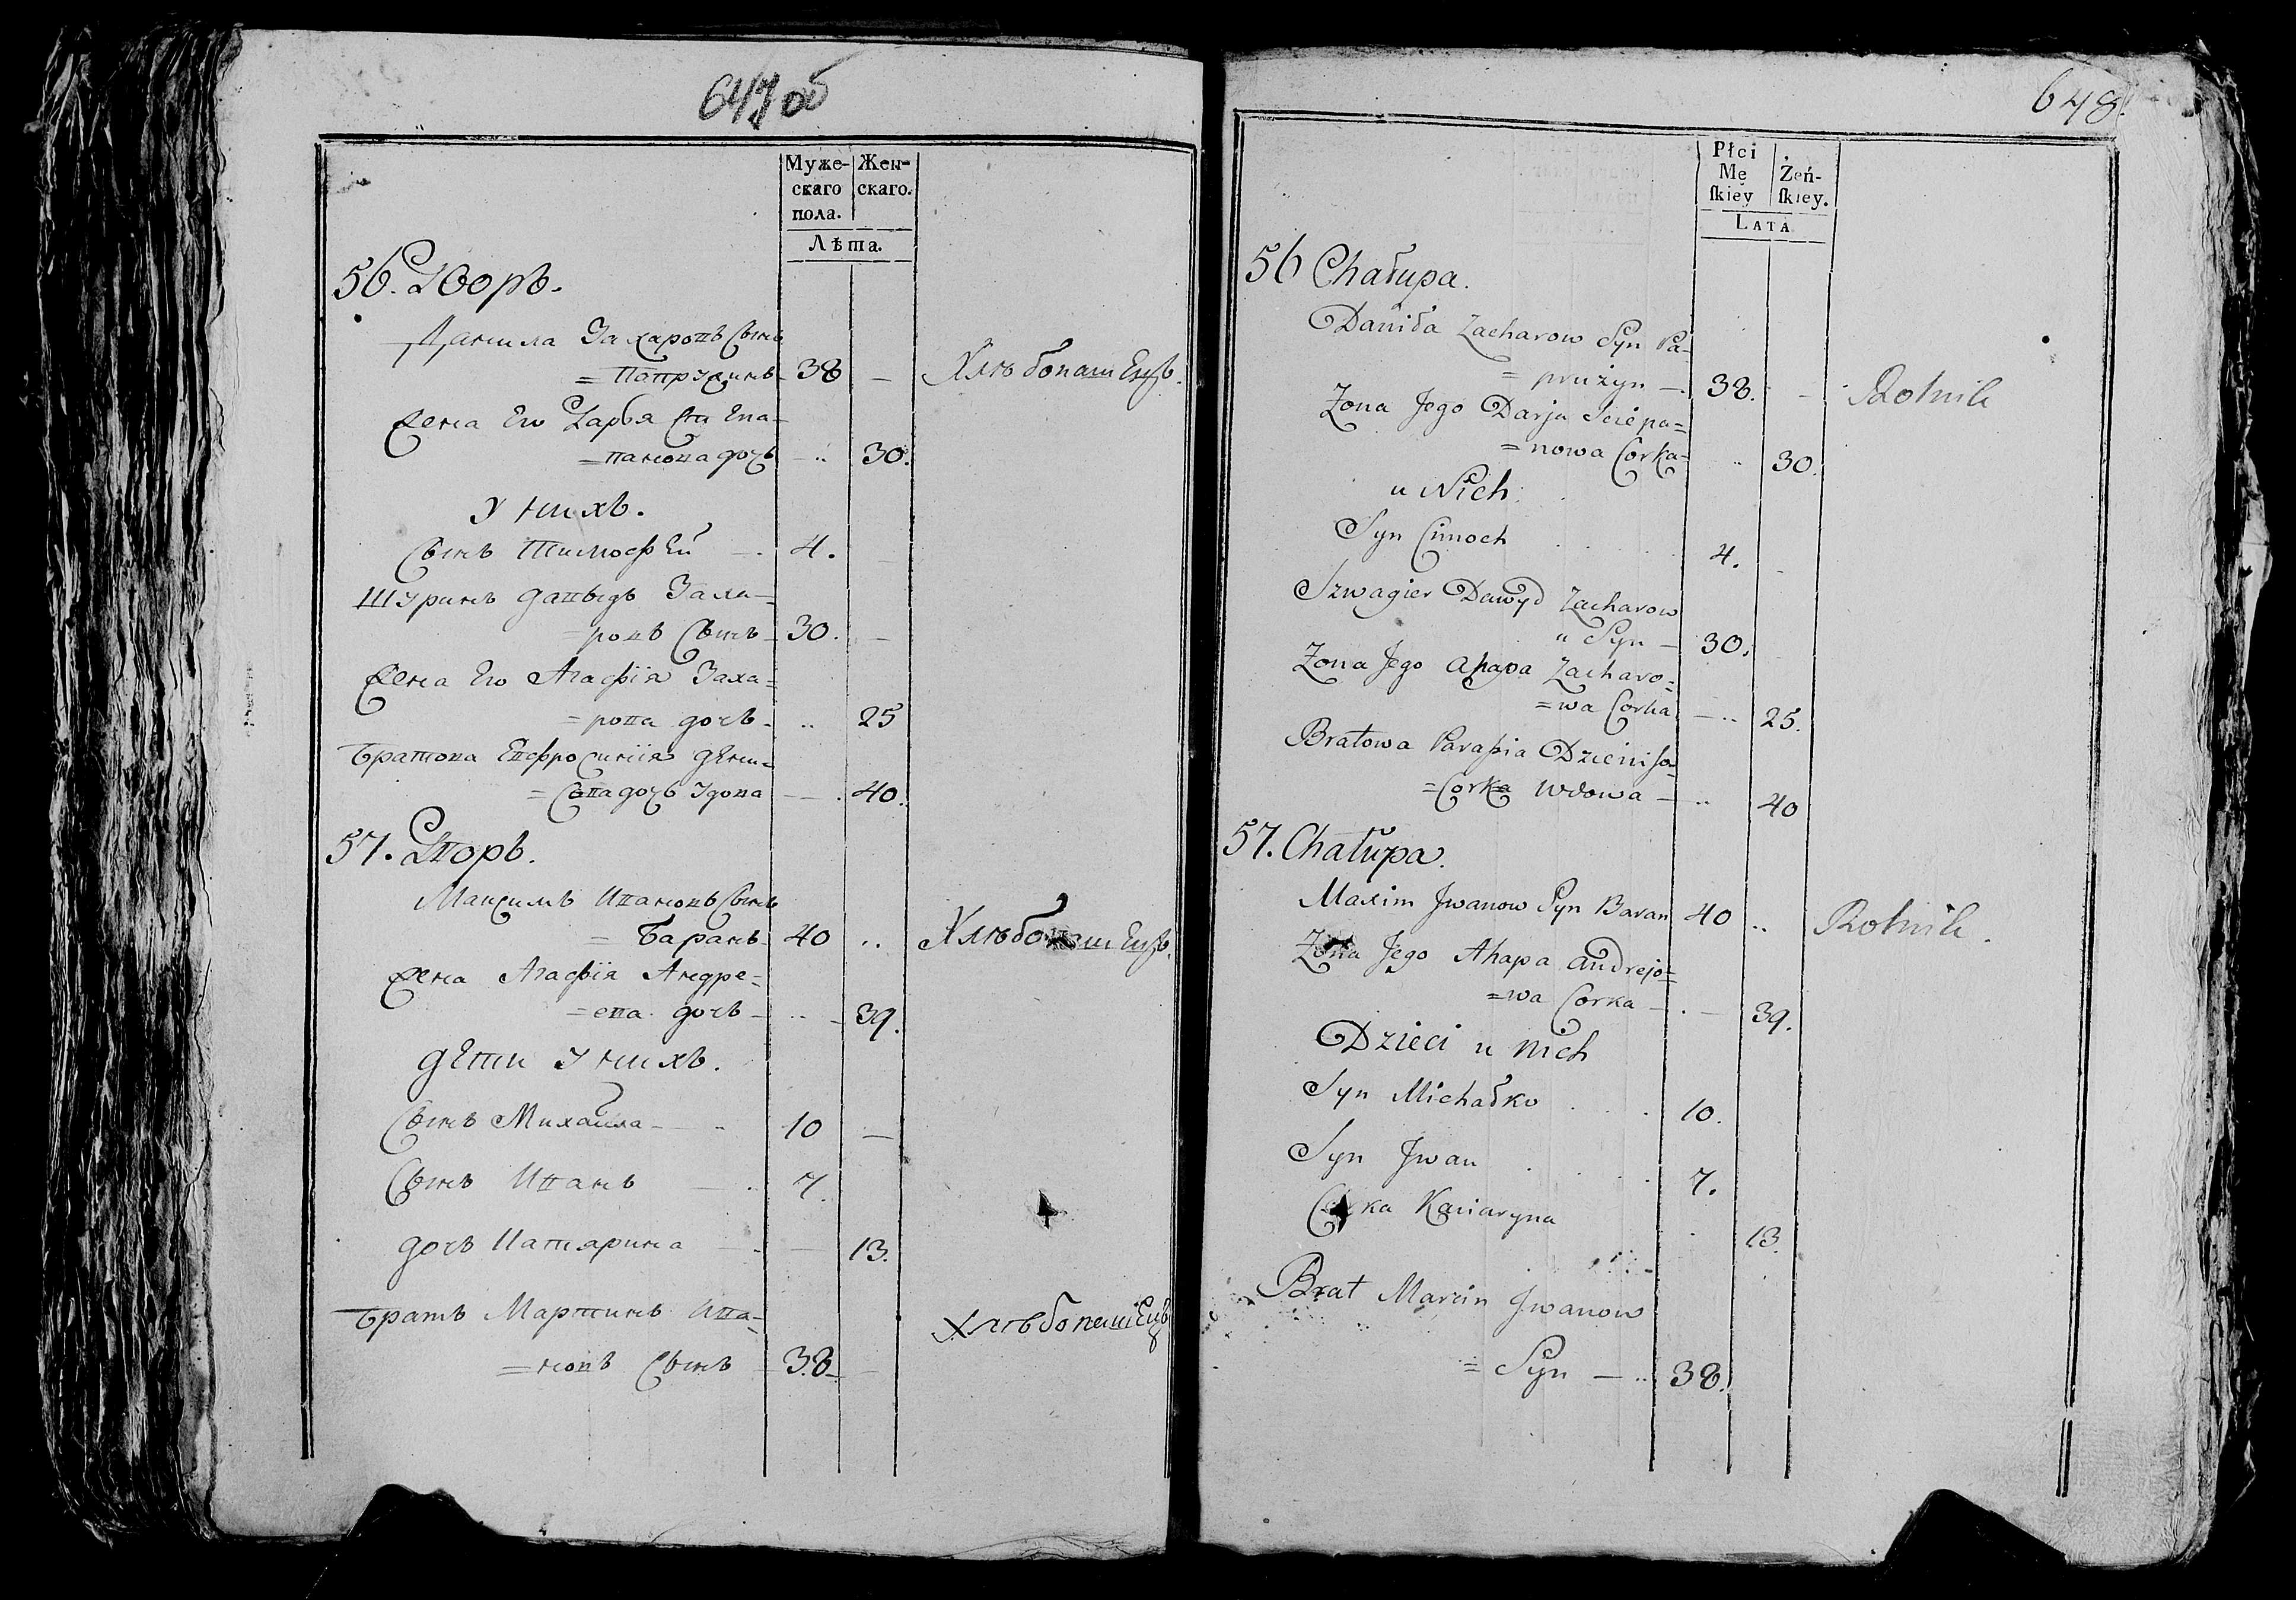 647 об
Муже-
скаго
пола.
Жен-
скаго.
Лѣта.
56. Дворъ.
Данила Захаровъ Сынъ
= Папружинъ - 38 — Хлѣбопашецъ.
Жена Его Дарья Сте
= панова дочь - .. 30.
У нихъ.
Сынъ Тимофей — . 4. -
Шуринъ давыдъ Заха-
= ровъ Сынъ - 30. —
Жена Его Агафія Заха-
= рова дочь - .. 25
Братова Евфросинія дени-
= сова дочь вдова — . 40.
57. Дворъ.
Максимъ Ивановъ Сынъ
= Баранъ - 40 .. Хлѣбопашецъ.
Жена Агафія Андре-
= ева дочь - .. - 39.
дети у нихъ.
Сынъ Михайла — .. 10 —
Сынъ Иванъ — .. 7.
дочь Катярина — .. — 13.
Братъ Мартинъ Ива-
= новъ Сынъ - 38 — Хлѣбопашецъ
648.
Płci
Mę
ſkiey
Żeń-
ſkiey.
LATA
56 Chałupa.
Daniła Zacharow Syn Pa-
= prużyn — 38. - Rolnik
Zona Jego Darja Sciepa=
= nowa Corka - .. 30.
u Nich.
Syn Cimoch . . . . 4. -
Szwagier Dawyd Zacharow
" Syn — 30.
Zona Jego Ahapa Zacharo=
= wa Corka — .. 25.
Bratowa Paraſia Dzieniſo-
= Corka wdowa — .. 40
57. Chałupa.
Maxim Jwanow Syn Baran 40 .. Rolnik.
Zona Jego Ahapa Andrejo=
= wa Corka — . — 39.
Dzieci u nich
Syn Michałko . . . 10.
Syn Jwan . . . . 7.
Corka Kaciaryna . 13.
Brat Marcin Jwanow
= Syn — .. 38.